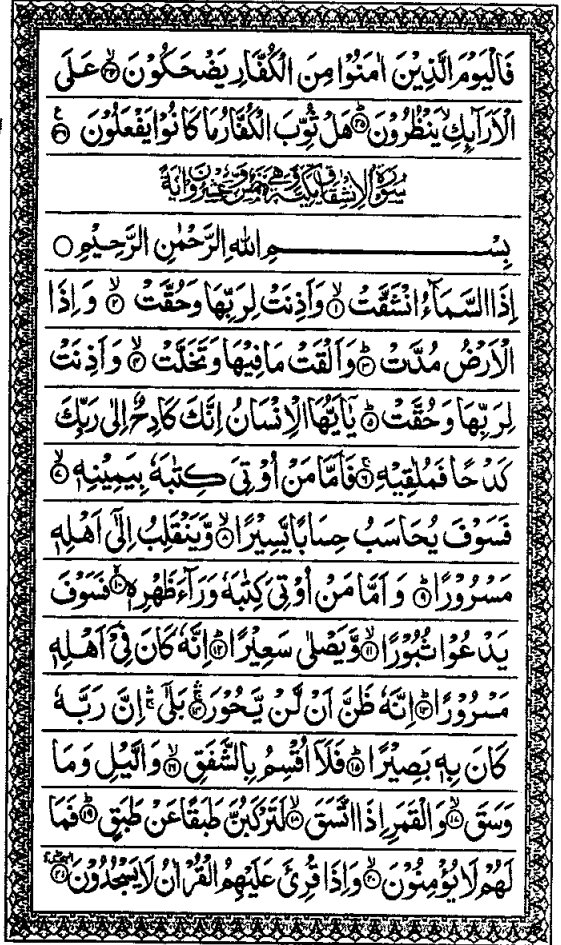 فَالْيَوْمَ الَّذِيْنَ اٰمَنُوْا مِنَ الْكُفَّارِ يَضْحَكُوْنَ ۙ﴿۳۴﴾ عَلَى
الْاَرَآئِكِ ۙ يَنْظُرُوْنَ ؕ﴿۳۵﴾ هَلْ ثُوِّبَ الْكُفَّارُ مَا كَانُوْا يَفْعَلُوْنَ ﴿۳۶﴾
سُوْرَةُ الْاِنْشِقَاقِ مَكِّيَّةٌ وَّهِىَ خَمْسٌ وَّعِشْرُوْنَ اٰيَةً
بِسْمِ اللّٰهِ الرَّحْمٰنِ الرَّحِيْمِ ○
اِذَا السَّمَآءُ انْشَقَّتْ ۙ﴿۱﴾ وَاَذِنَتْ لِرَبِّهَا وَحُقَّتْ ۙ﴿۲﴾ وَاِذَا
الْاَرْضُ مُدَّتْ ؕ﴿۳﴾ وَاَلْقَتْ مَا فِيْهَا وَتَخَلَّتْ ۙ﴿۴﴾ وَاَذِنَتْ
لِرَبِّهَا وَحُقَّتْ ؕ﴿۵﴾ يٰۤاَيُّهَا الْاِنْسَانُ اِنَّكَ كَادِحٌ اِلٰى رَبِّكَ
كَدْحًا فَمُلٰقِيْهِ ۚ﴿۶﴾ فَاَمَّا مَنْ اُوْتِىَ كِتٰبَهٗ بِيَمِيْنِهٖ ۙ﴿۷﴾
فَسَوْفَ يُحَاسَبُ حِسَابًا يَّسِيْرًا ۙ﴿۸﴾ وَّيَنْقَلِبُ اِلٰۤى اَهْلِهٖ
مَسْرُوْرًا ؕ﴿۹﴾ وَاَمَّا مَنْ اُوْتِىَ كِتٰبَهٗ وَرَآءَ ظَهْرِهٖ ۙ﴿۱۰﴾ فَسَوْفَ
يَدْعُوْا ثُبُوْرًا ۙ﴿۱۱﴾ وَّيَصْلٰى سَعِيْرًا ؕ﴿۱۲﴾ اِنَّهٗ كَانَ فِىْۤ اَهْلِهٖ
مَسْرُوْرًا ؕ﴿۱۳﴾ اِنَّهٗ ظَنَّ اَنْ لَّنْ يَّحُوْرَ ۚ﴿۱۴﴾ بَلٰٓى ۚ اِنَّ رَبَّهٗ
كَانَ بِهٖ بَصِيْرًا ؕ﴿۱۵﴾ فَلَاۤ اُقْسِمُ بِالشَّفَقِ ۙ﴿۱۶﴾ وَالَّيْلِ وَمَا
وَسَقَ ۙ﴿۱۷﴾ وَالْقَمَرِ اِذَا اتَّسَقَ ۙ﴿۱۸﴾ لَتَرْكَبُنَّ طَبَقًا عَنْ طَبَقٍ ؕ﴿۱۹﴾ فَمَا
لَهُمْ لَا يُؤْمِنُوْنَ ۙ﴿۲۰﴾ وَاِذَا قُرِئَ عَلَيْهِمُ الْقُرْاٰنُ لَا يَسْجُدُوْنَ ؕ﴿۲۱﴾